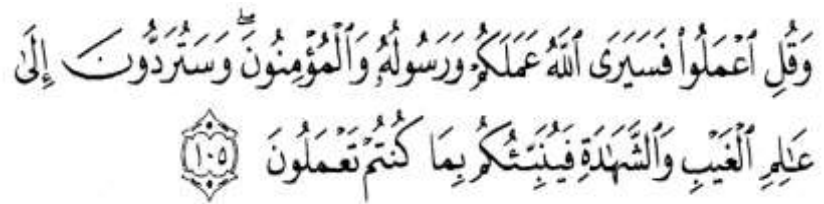 وَقُلِ ٱعْمَلُوا۟ فَسَيَرَى ٱللَّهُ عَمَلَكُمْ وَرَسُولُهُۥ وَٱلْمُؤْمِنُونَ ۖ وَسَتُرَدُّونَ إِلَىٰ
عَٰلِمِ ٱلْغَيْبِ وَٱلشَّهَٰدَةِ فَيُنَبِّئُكُم بِمَا كُنتُمْ تَعْمَلُونَ ١٠٥